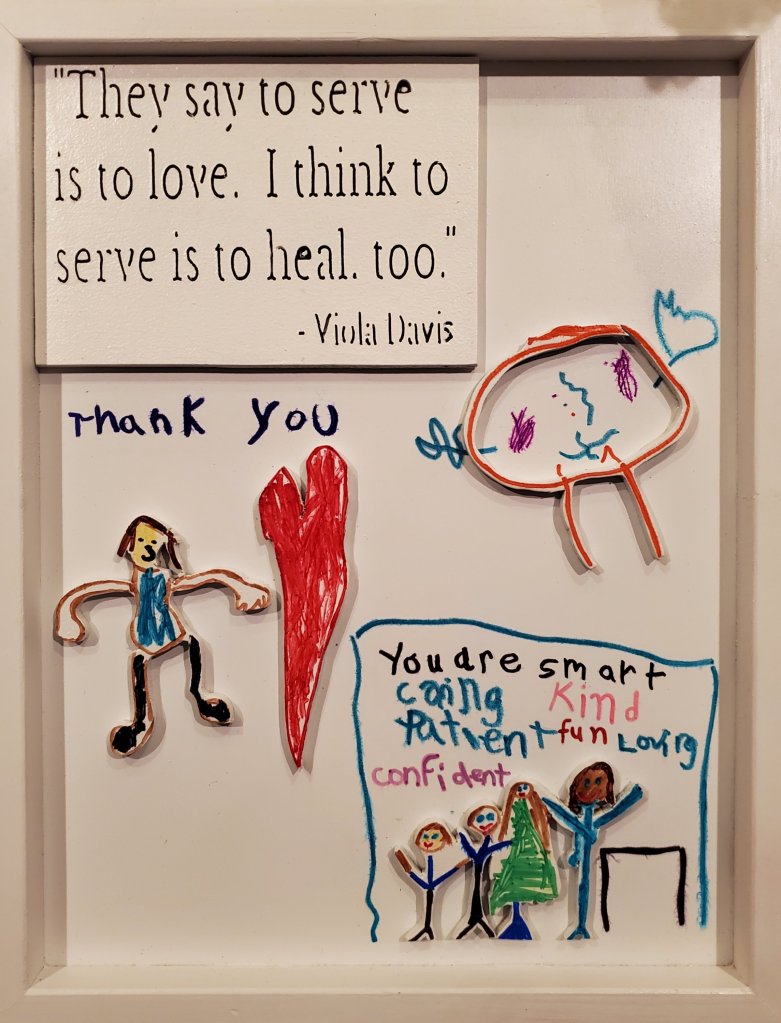 "They say to serve
is to love. I think to
serve is to heal. too."
- Viola Davis
Thank you
You are smart
caring kind
Patient fun Loving
confident